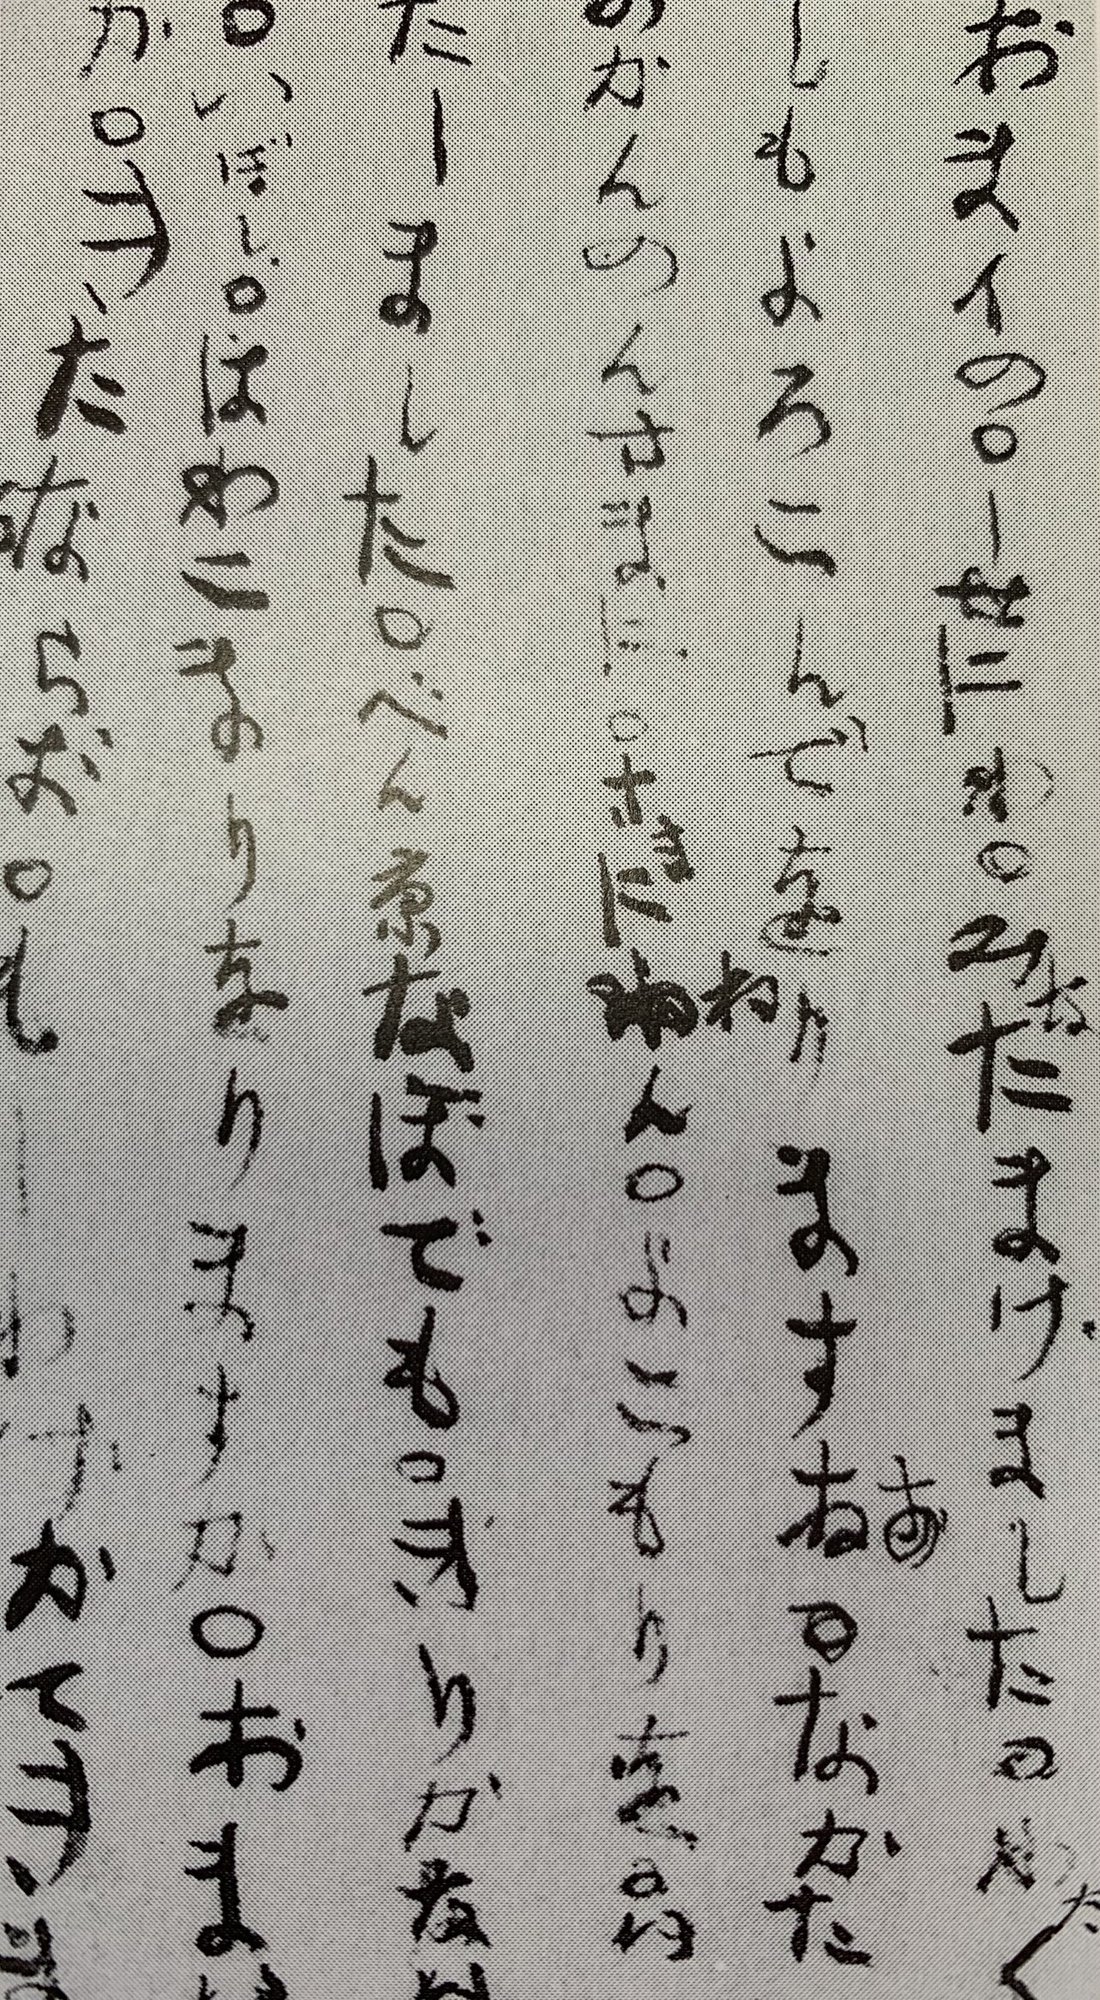 おまイの○しせにわ○みなたまけました○わたく
しもよろこんでをります○なかた
のかんのんさまに○さまにねん○よこもりを○い
たしました○べん京なぼでも○きりかない
○いぼし○ほわこまりをりますか○おまい
か○きたならば○もしわけかてきま